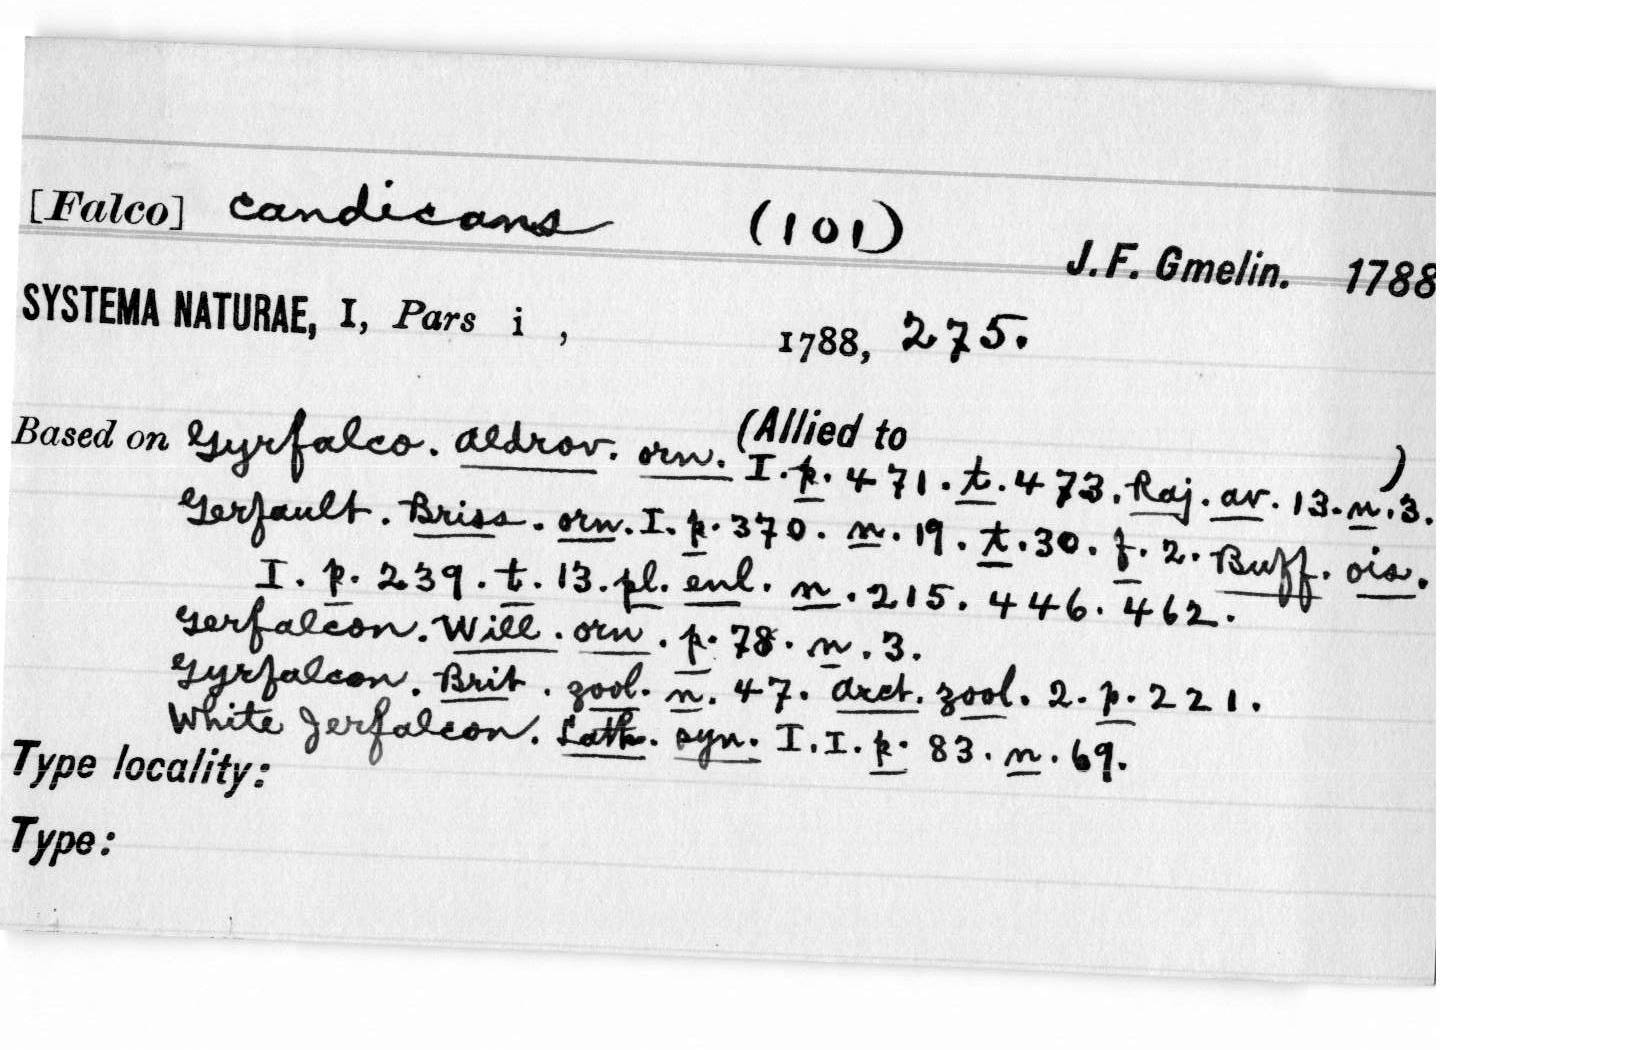 [Falco] candicans (101)
J.F. Gmelin. 1788
SYSTEMA NATURAE, I, Pars i , 1788, 275.
(Allied to )
Based on Gyrfalco. Aldrov. orn. I. p. 471. t. 473. Raj. av. 13. n. 3.
Gerfault. Briss. orn. I. p. 370. n. 19. t. 30. f. 2. Buff. ois.
I. p. 239. t. 13. pl. enl. n. 215. 446. 462.
Gerfalcon. Will. orn. p. 78. n. 3.
Gyrfalcon. Brit. zool. n. 47. Arct. zool. 2. p. 221.
White Jerfalcon. Lath. syn. I. I. p. 83. n. 69.
Type locality:
Type: